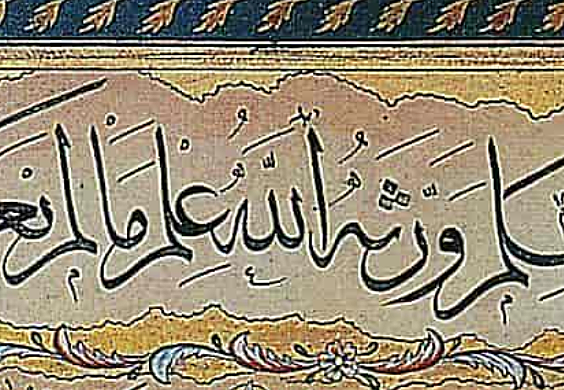 عَلِمَ وَرَّثَهُ اللّٰهُ عِلْمَ مَا لَمْ يَعْ